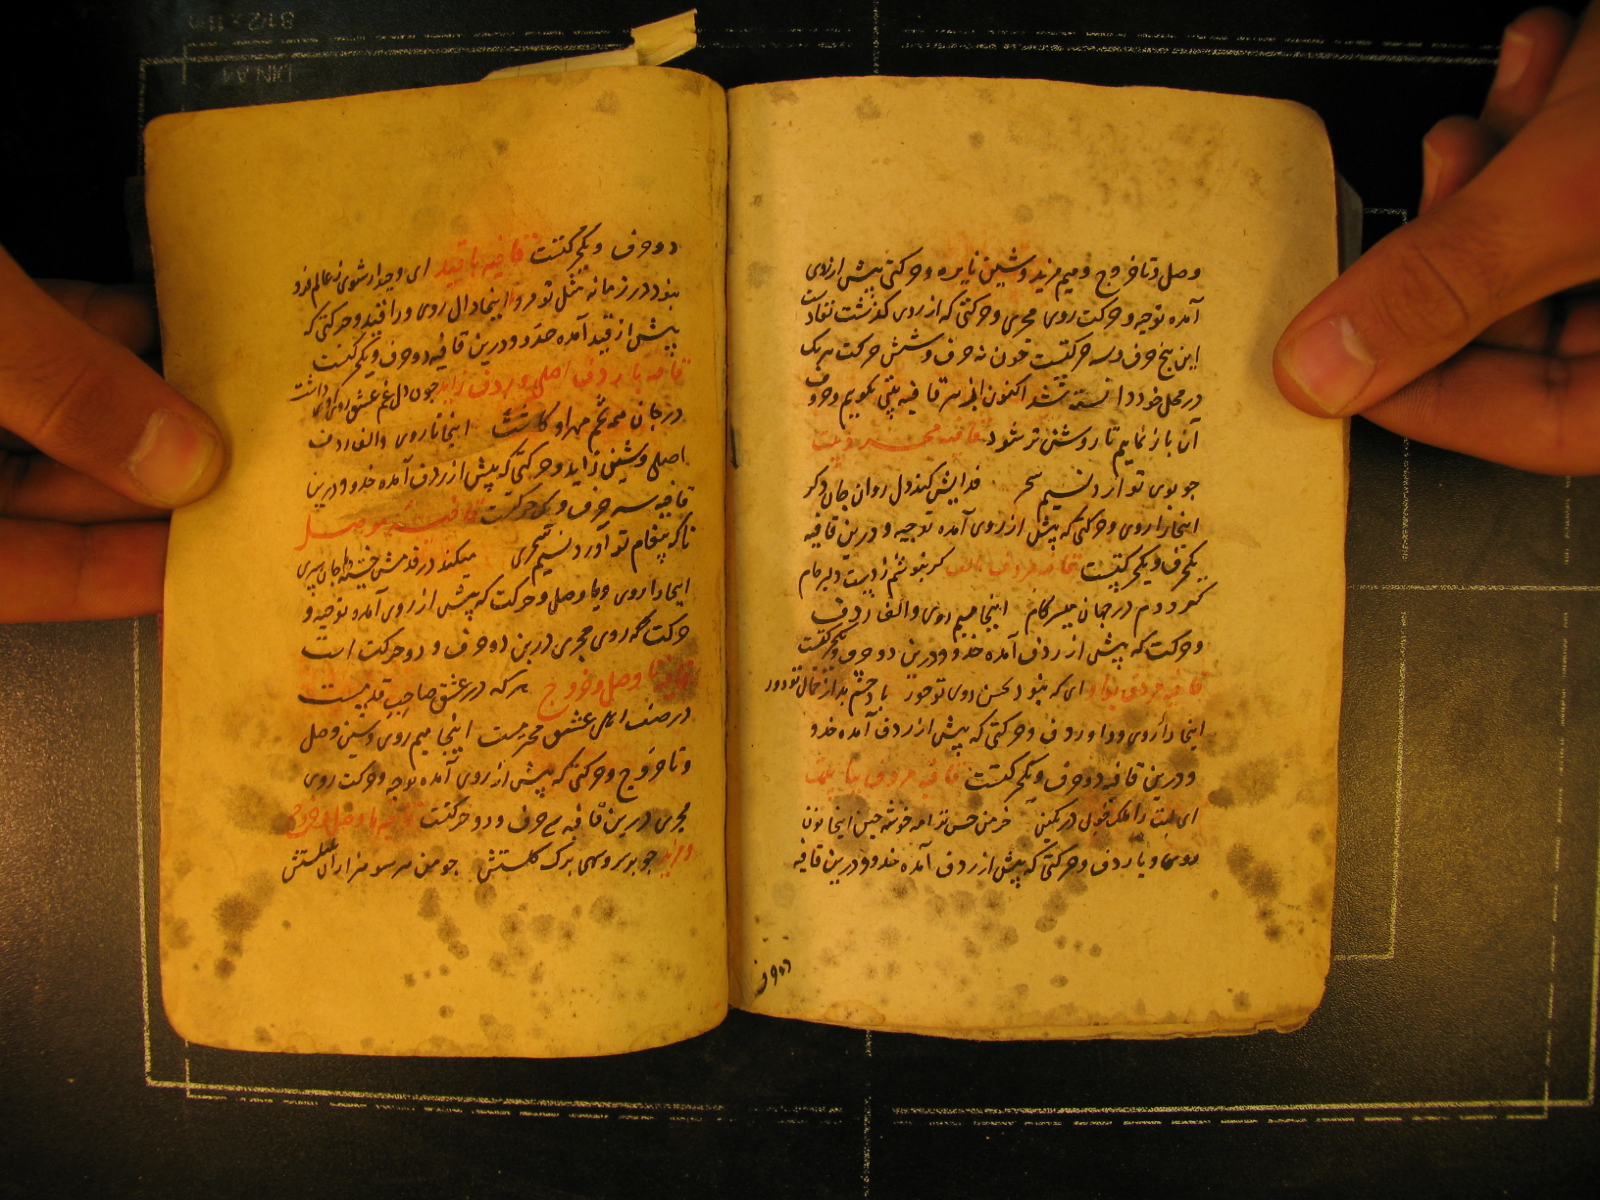 وصل و تا خروج و میم مزید و شین نایره و حرکتی پیش از روی
آمده توجیه و حرکت روی مجری و حرکتی که از روی گذشت نفاذ است
این پنج حرف و سه حرکتست چون نه حرف و شش حرکت هر یک
در محل خود دانسته شد اکنون از هر قافیه بیتی بگویم و حروف
آن باز نمایم تا روشن تر شود قافیه مجرد بیت
چو بوی تو آرد نسیم سحر فدایش کند دل روان جان دگر
اینجا را روی و حرکتی که پیش از روی آمده توجیه و درین قافیه
یکحرف و یکحرکتست قافیه مردف بالف کر نبوشم ز دست دلبر جام
کمر ددم در جهان میسر کام اینجا میم روی والف ردف
و حرکت که پیش از ردف آمده حذو و درین دو حرف و یکحرکتست
قافیه مردف بواو ای که نبود بحسن روی تو حور باد چشم بد از جمال تو دور
اینجا را روی و واو ردف و حرکتی که پیش از ردف آمده حذو
و درین قافیه دو حرف و یکحرکتست قافیه مردف بیا بیت
ای لبت را ملک خوبی در نگین خرمن حسن ترا مه خوشه چین اینجا نون
روی و یا ردف و حرکتی که پیش از ردف آمده حذو و درین قافیه
دو حرف
دو حرف و یکحرکتست قافیه با قید ای وحید ار شوی ز عالم فرد
نبود در زمانه مثل تو مرد اینجا دال روی و را قید و حرکتی که
پیش از قید آمده حذو و درین قافیه دو حرف و یکحرکتست
قافیه با ردف اصلی و ردف زاید چون دل غم عشق روی او داشت
در جان همه تخم مهر او کاشت اینجا تا روی والف ردف
اصلی و شین زاید و حرکتی که پیش از ردف آمده حذو و درین
قافیه سه حرف و یک حرکتست قافیه موصل
تا که پیغام تو آورد نسیم سحری میکند در قدمش خسته دلا جان سپری
اینجا را روی و یا وصل و حرکت که پیش از روی آمده توجیه و
حرکت که روی مجری درین دو حرف و دو حرکت است
قافیه با وصل و خروج هر که در عشق صاحب قدمیست
در صف اهل عشق محرمیست اینجا میم روی و سین وصل
و تا خروج و حرکتی که پیش از روی آمده توجیه و حرکت روی
مجری درین قافیه سه حرف و دو حرکتست قافیه با وصل و خروج
و مزید چو بر سر و سهی برک گلستش چو من هر سو هزاران بلبلستش